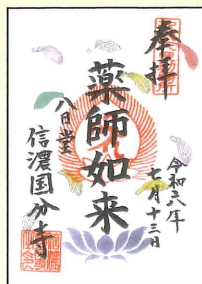 奉拝
令和六年
七月十三日
薬師如来
八日堂
信濃国分寺